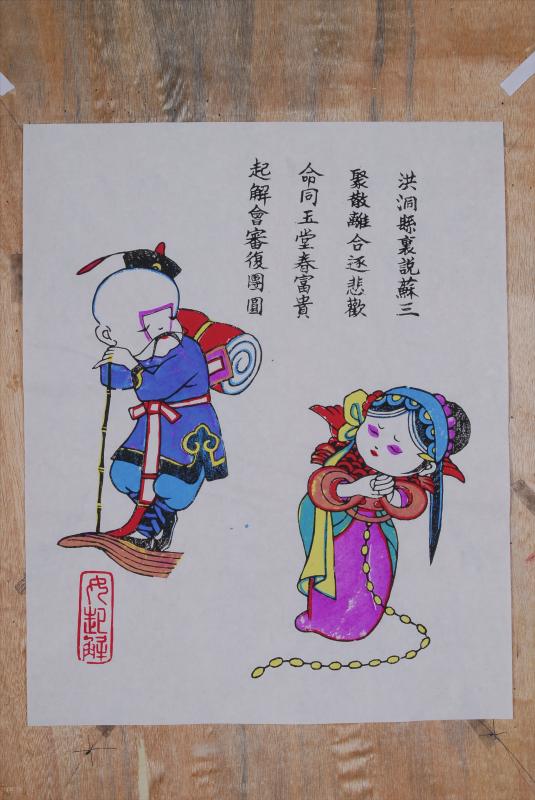 洪洞縣裏說蘇三
聚散離合逐悲歡
命同玉堂春富貴
起解會審復團圓
女起解